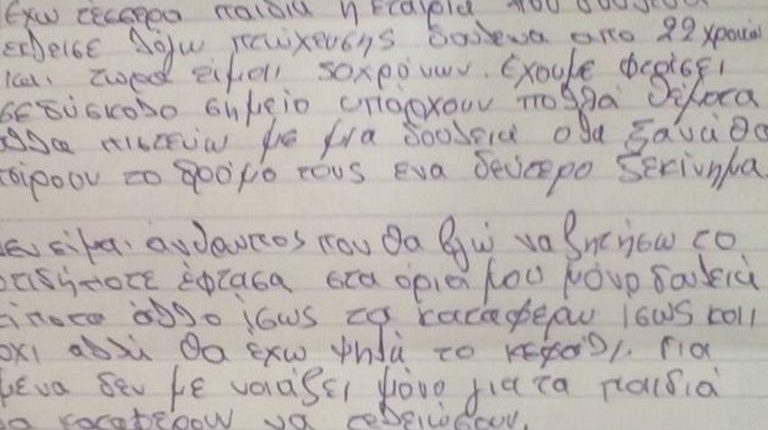 Εχω τέσσερα παιδια η εταιρία που δούλευα
εκλεισε λόγω πτώχευσης δουλευα απο 22 χρονών
και τωρα είμαι 50χρόνων. έχουμε φτάσει
σε δύσκολο σημείο υπάρχουν πολλά θέματα
αλλα πιστεύω με μια δουλεια ολα ξανά θα
πάρουν το δρόμο τους ενα δεύτερο ξεκίνημα.
Δεν είμαι άνθρωπος που θα βγώ να ζητήσω το
οτιδήποτε έφτασα στα όρια μου μόνο δουλειά
τίποτα άλλο ίσως τα καταφέρω ισως και
οχι αλλά θα έχω ψηλά το κεφάλι. Για
μένα δεν με νοιάζει μόνο για τα παιδιά
να καταφέρουν να τελειώσουν.